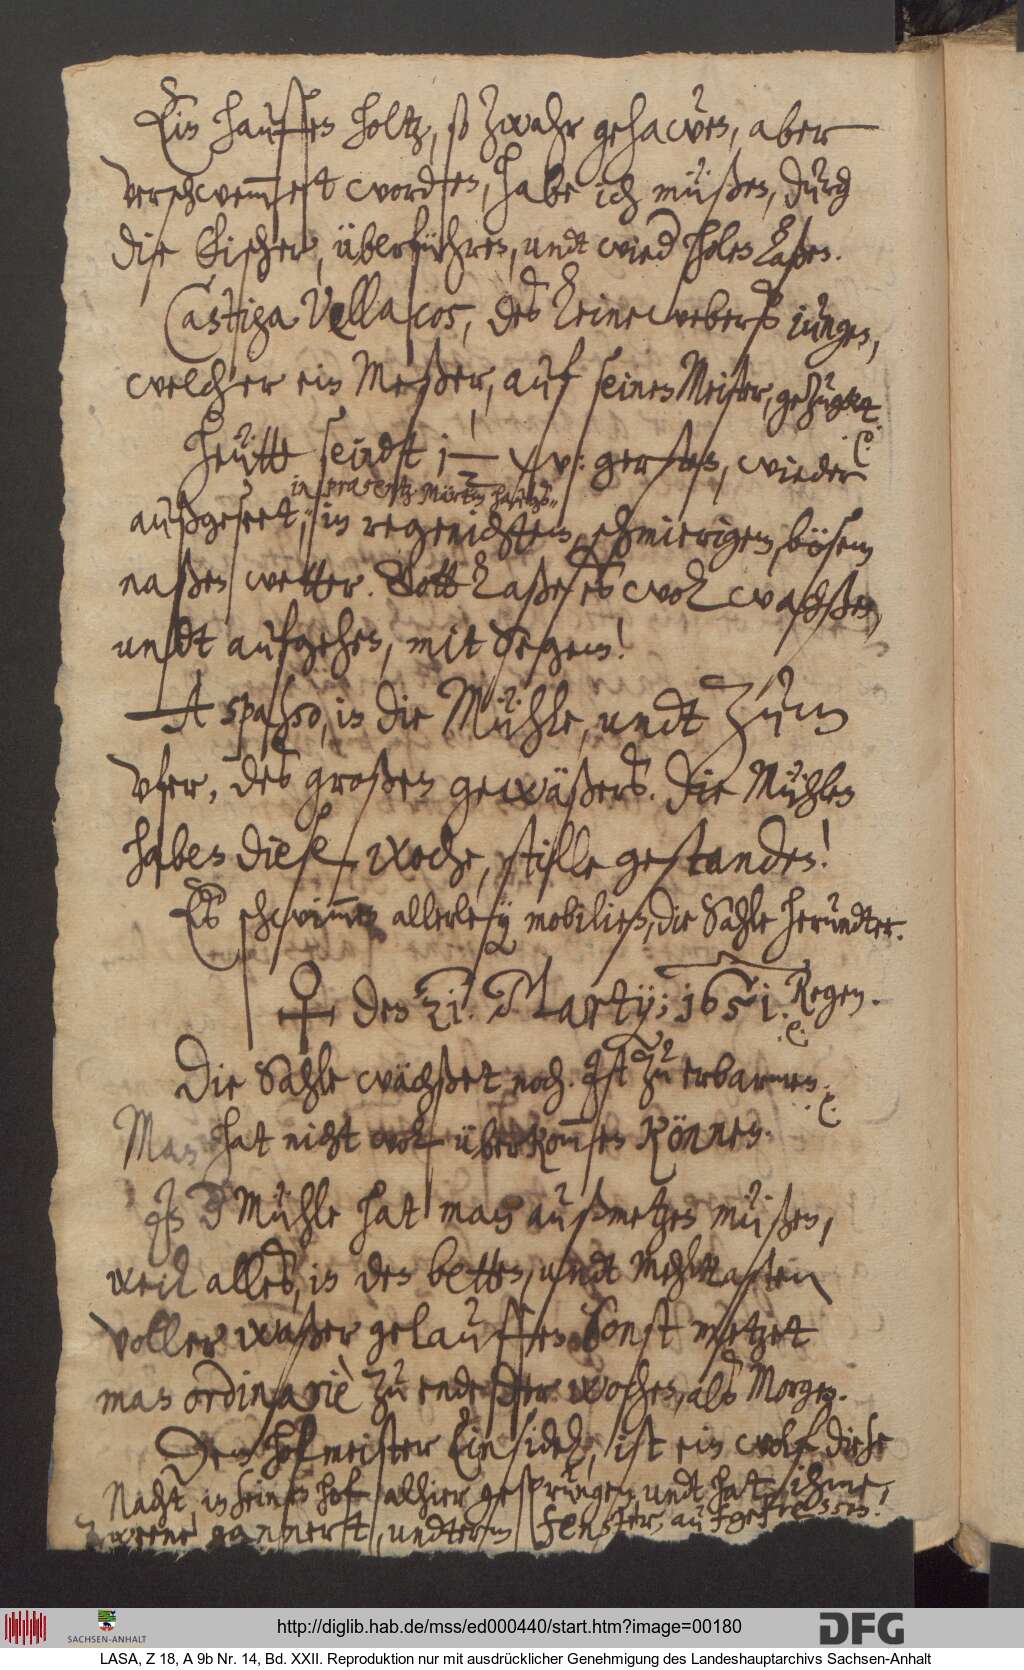 Ein hauffen holtz, so zwahr gehawen, aber
verschwem̅et worden, habe ich müßen, durch
die Fischer, überführen, undt wied holen laßen.
Castiga Vellacos, des leinewebers jungen,
welcher ein Meßer, auf seinen Meister, gezugkt.
heütte seindt 1 w: gersten, wieder
in præsentz Märtin
außgeseet, in regenichtem, schmierigem, bösem
naßen wetter. Gott laße es wol wachßen,
undt aufgehen, mit Segen!
A spasso, in die Mühle, undt zum
vfer, des großen gewäßers. Die Mühlen
haben diese woche, stille gestanden!
Es schwim̅en allerley mobilien, die Sahle herundter.
♀ den 21. Martij; 1651. Regen.
Die Sahle wächßet noch. Ist zu erbarmen.
Man hat nicht wol überkom̅en können.
In d Mühle hat man außmetzen müßen,
weil alles, in den betten, undt Mehlkasten
voller waßer gelauffen. Sonst metzet
man ordinariè zu ende der wochen, als Morgen.
Dem hofmeister Einsidel, ist ein wolf diese
Nacht in seinen hof alhier gesprungen, undt hat ihme,
zweene gännerst, undterm fenster, aufgefressen!
http://diglib.hab.de/mss/ed000440/start.htm?image=00180
SACHSEN-ANHALT
DFG
LASA, Z 18, A 9b Nr. 14, Bd. XXII. Reproduktion nur mit ausdrücklicher Genehmigung des Landeshauptarchivs Sachsen-Anhalt